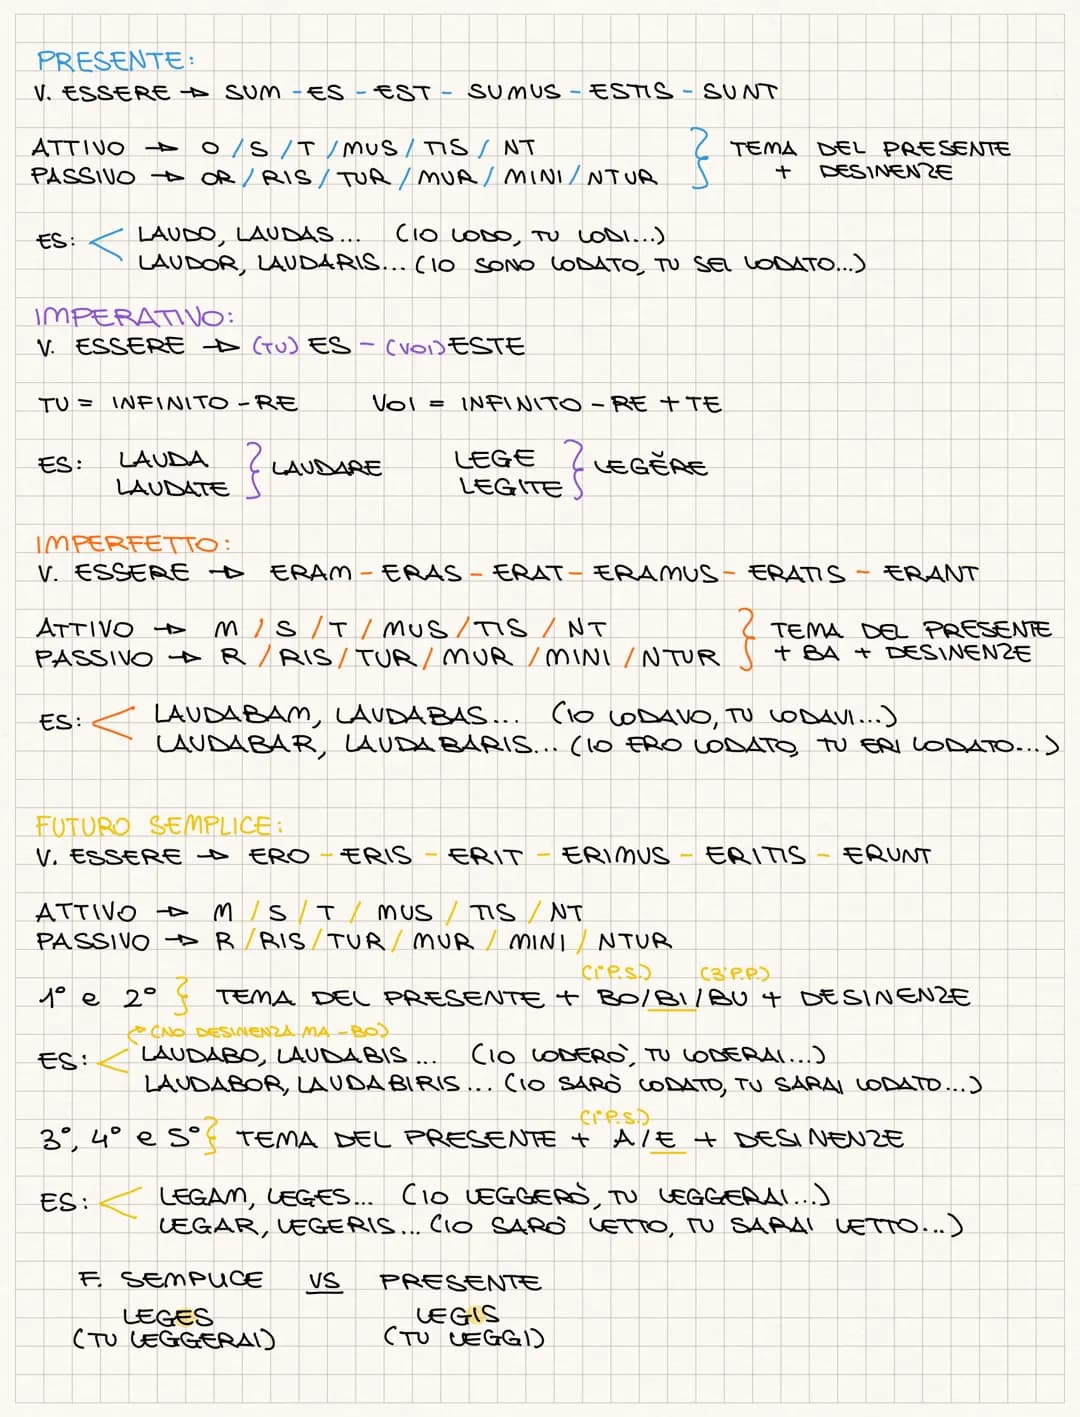 PRESENTE:
V. ESSERE → SUM - ES - EST - SUMUS - ESTIS - SUNT
ATTIVO → O / S / T / MUS / TIS / NT } TEMA DEL PRESENTE
PASSIVO → OR / RIS / TUR / MUR / MINI / NTUR + DESINENZE
ES: < LAUDO, LAUDAS... (IO LODO, TU LODI...)
LAUDOR, LAUDARIS... (IO SONO LODATO, TU SEI LODATO...)
IMPERATIVO:
V. ESSERE → (TU) ES - (VOI) ESTE
TU = INFINITO - RE VOI = INFINITO - RE + TE
ES: LAUDA } LAUDARE LEGE } LEGĔRE
LAUDATE LEGITE
IMPERFETTO:
V. ESSERE → ERAM - ERAS - ERAT - ERAMUS - ERATIS - ERANT
ATTIVO → M / S / T / MUS / TIS / NT } TEMA DEL PRESENTE
PASSIVO → R / RIS / TUR / MUR / MINI / NTUR + BA + DESINENZE
ES: < LAUDABAM, LAUDABAS... (IO LODAVO, TU LODAVI...)
LAUDABAR, LAUDABARIS... (IO ERO LODATO, TU ERI LODATO...)
FUTURO SEMPLICE:
V. ESSERE → ERO - ERIS - ERIT - ERIMUS - ERITIS - ERUNT
ATTIVO → M / S / T / MUS / TIS / NT
PASSIVO → R / RIS / TUR / MUR / MINI / NTUR
(1°P.S.) (3°P.P.)
1° e 2° } TEMA DEL PRESENTE + BO/BI/BU + DESINENZE
→ (NO DESINENZA MA -BO)
ES: < LAUDABO, LAUDABIS... (IO LODERÒ, TU LODERAI...)
LAUDABOR, LAUDABIRIS... (IO SARÒ LODATO, TU SARAI LODATO...)
(1°P.S.)
3°, 4° e 5° } TEMA DEL PRESENTE + A/E + DESINENZE
ES: < LEGAM, LEGES... (IO LEGGERÒ, TU LEGGERAI...)
LEGAR, LEGERIS... (IO SARÒ LETTO, TU SARAI LETTO...)
F. SEMPLICE VS PRESENTE
LEGES LEGIS
(TU LEGGERAI) (TU LEGGI)